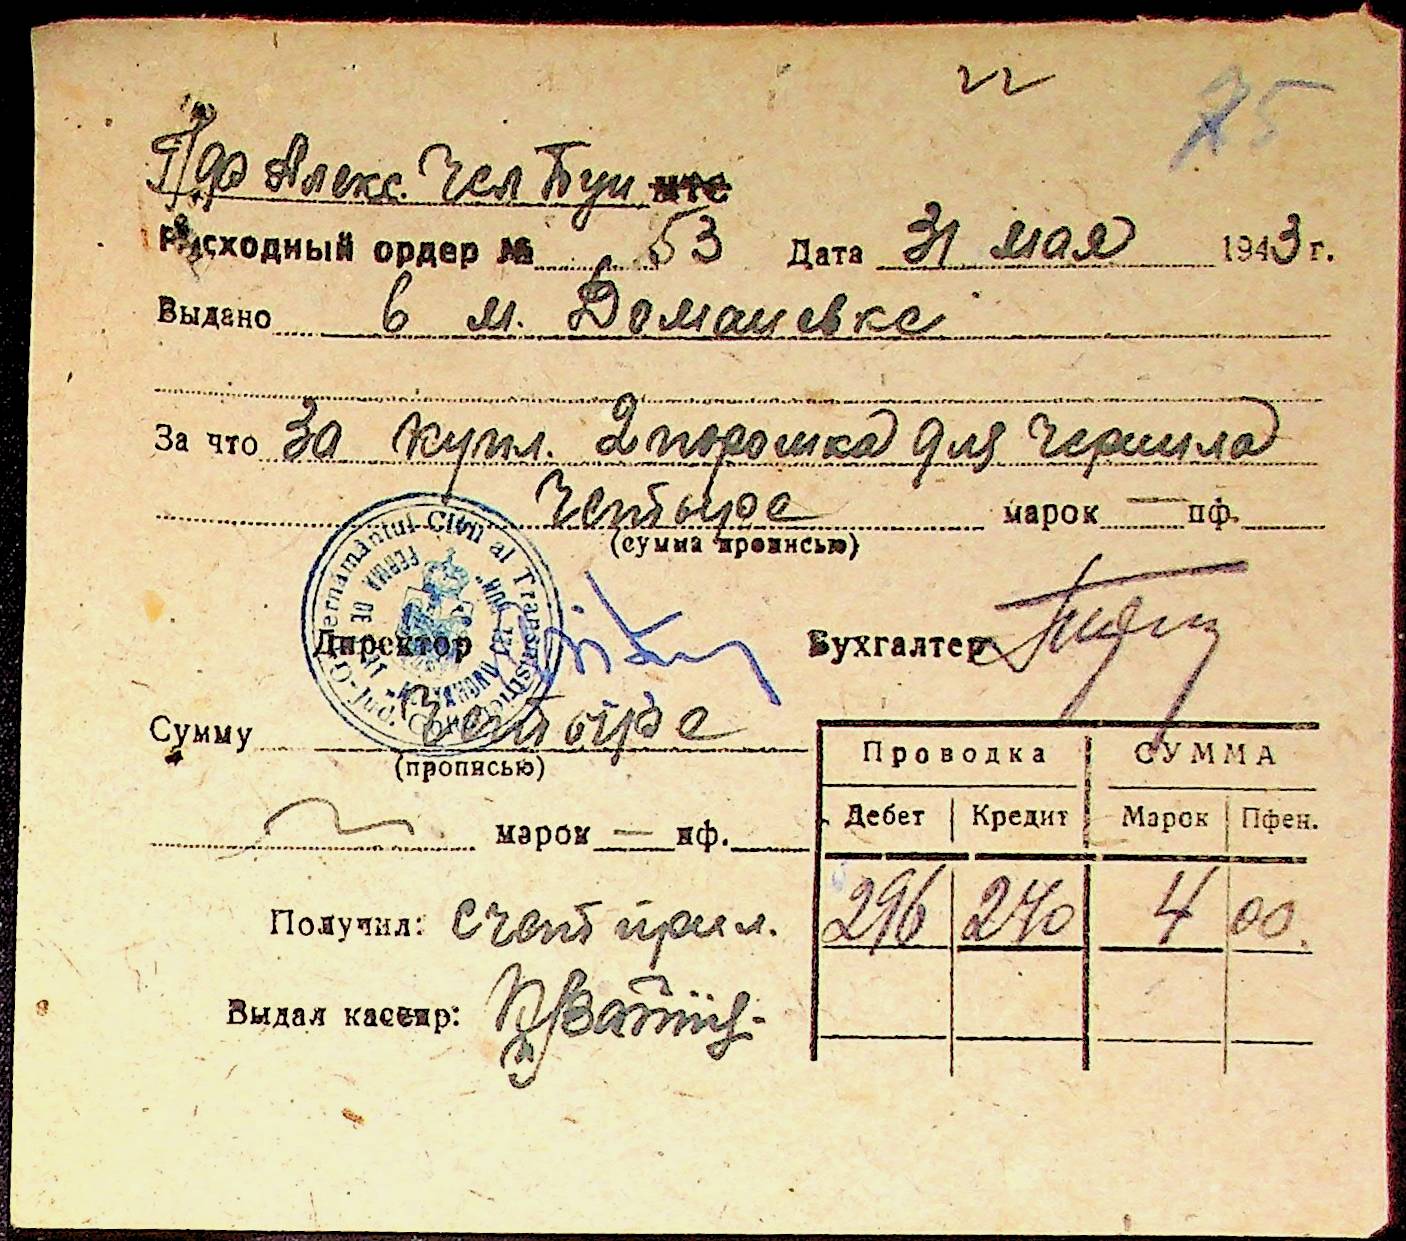 75
П/ф Алекс. Чел Буи МТС
Расходный ордер № 53 Дата 31 мая 1943 г.
Выдано в м. Доманевке
За что За купл. 2 порошка для чернила
Четыре марок — пф.
(сумма прописью)
Guvernământul Civil al Transnistriei
FERMA DE
Директор Бухгалтер
Сумму Четыре
(прописью)
марок — пф.
Проводка СУММА
Дебет Кредит Марок Пфен.
296 240 4 00
Получил: счет прил.
Выдал кассир: